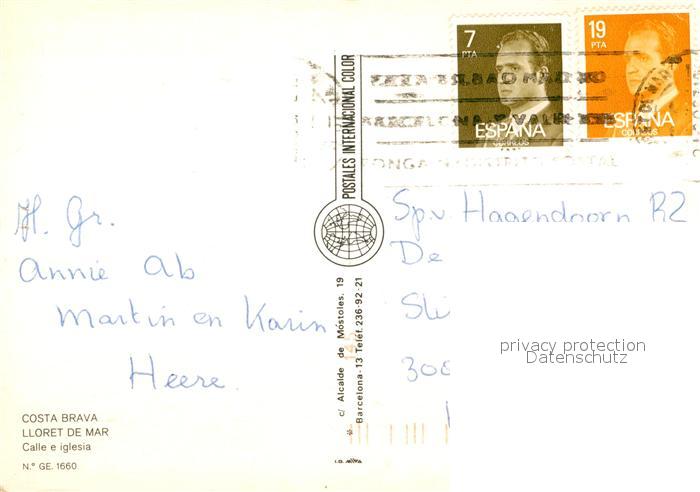 7
PTA
ESPAÑA
CORREOS
19
PTA
ESPAÑA
CORREOS
BARCELONA
PONGA DISTRITO POSTAL
H. Gr.
Annie Ab
Martin en Karin
Heere.
COSTA BRAVA
LLORET DE MAR
Calle e iglesia
N.° GE. 1660
POSTALES INTERNACIONAL COLOR
c/ Alcalde de Móstoles, 19
Barcelona-13 Teléf. 236-92-21
Sp.v. Haaendoorn R2
De
Sli
300
privacy protection
Datenschutz